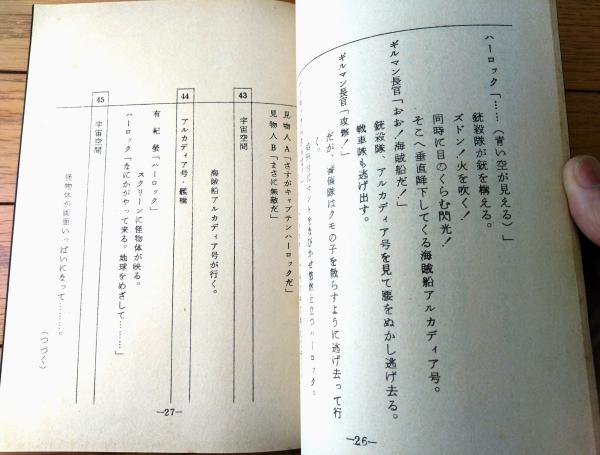 ハーロック「……（青い空が見える）」
銃殺隊が銃を構える。
ズドン！火を吹く！
同時に目のくらむ閃光！
そこへ垂直降下してくる海賊船アルカディア号。
ギルマン長官「おお！海賊船だ！」
銃殺隊、アルカディア号を見て腰をぬかし逃げ去る。
戦車隊も逃げ出す。
ギルマン長官「攻撃！」
だが、警備隊はクモの子を散らすように逃げ去って行
く。
マントをなびかせ悠然と立つハーロック。
—26—
見物人A「さすがキャプテンハーロックだ」
見物人B「まさに無敵だ」
43
宇宙空間
海賊船アルカディア号が行く。
44
アルカディア号・艦橋
スクリーンに怪物体が映る。
有紀螢「ハーロック」
ハーロック「なにかがやって来る。地球をめざして………」
45
宇宙空間
怪物体が画面いっぱいになって………。
（つづく）
—27—